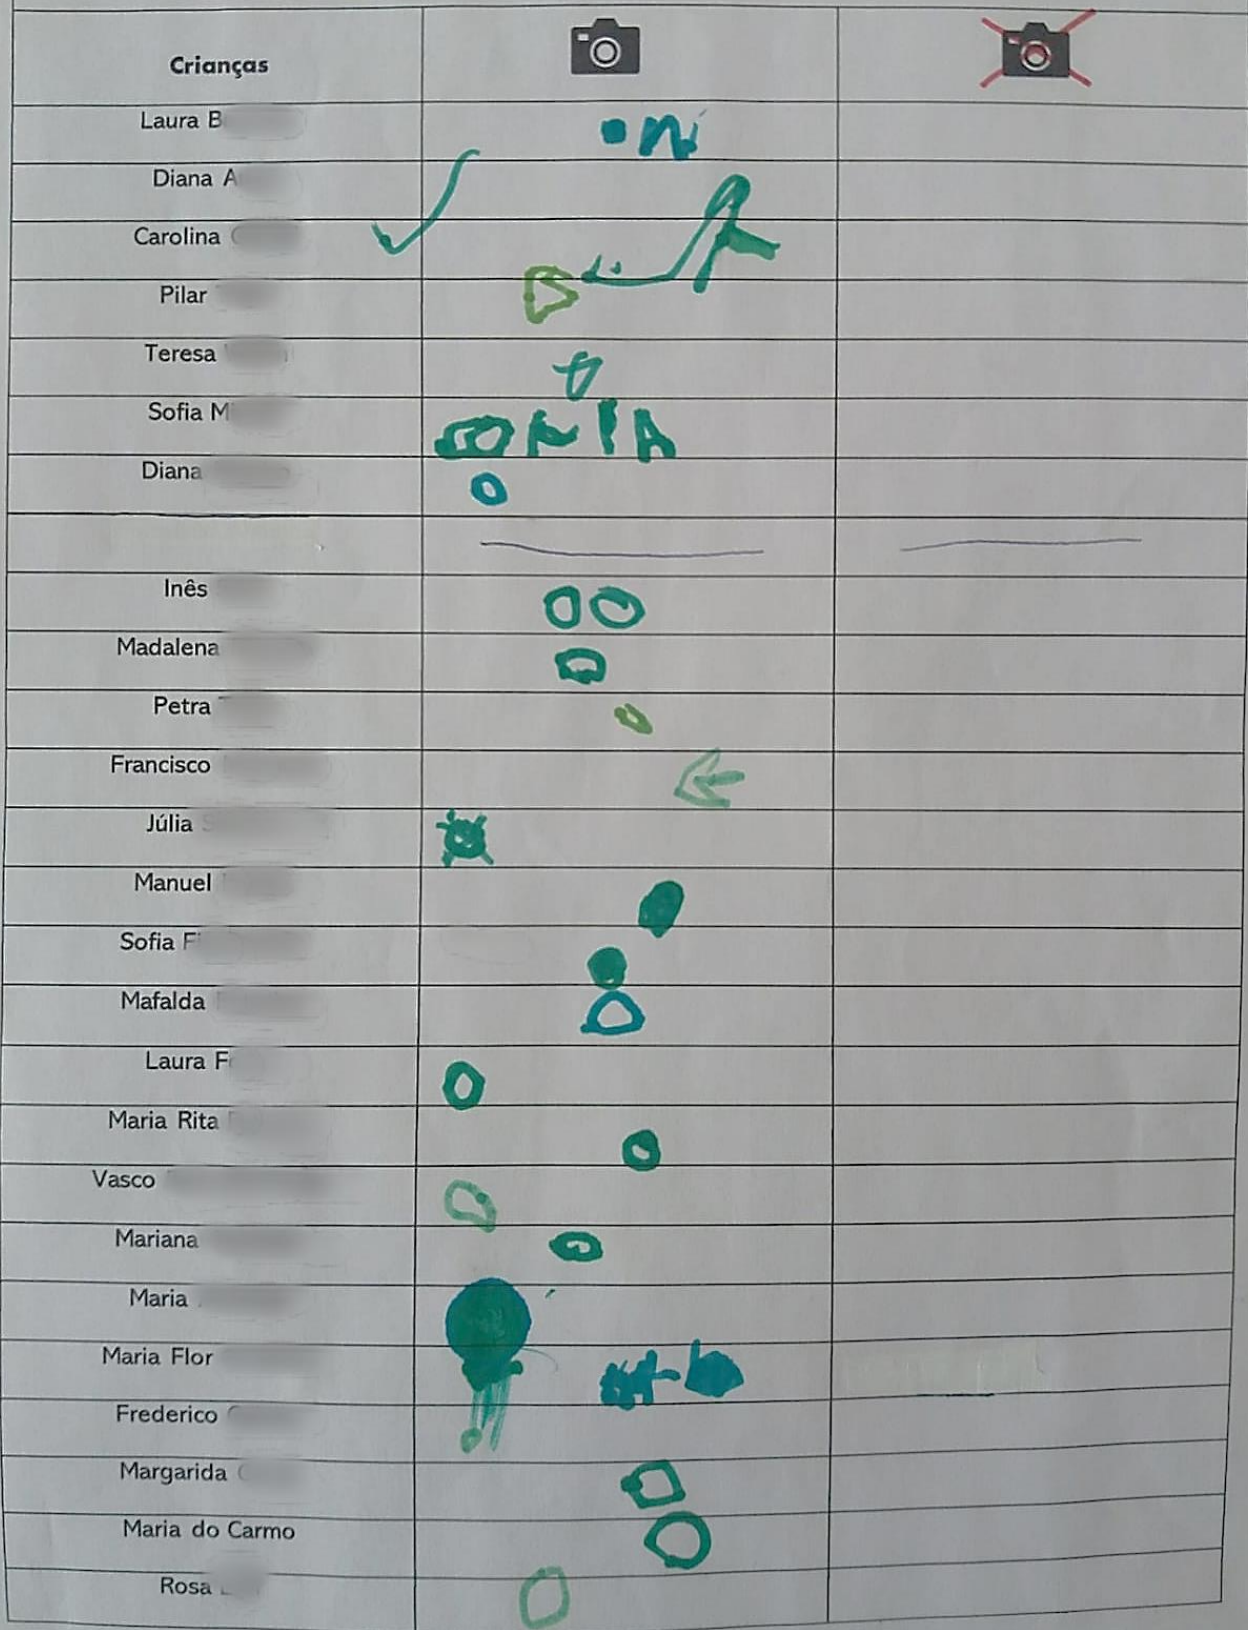 Crianças
Laura B
Diana A
Carolina
Pilar
Teresa
Sofia M
SOFIA
Diana
Inês
Madalena
Petra
Francisco
Júlia S
Manuel
Sofia F
Mafalda
Laura F
Maria Rita
Vasco
Mariana
Maria
Maria Flor
Frederico
Margarida
Maria do Carmo
Rosa